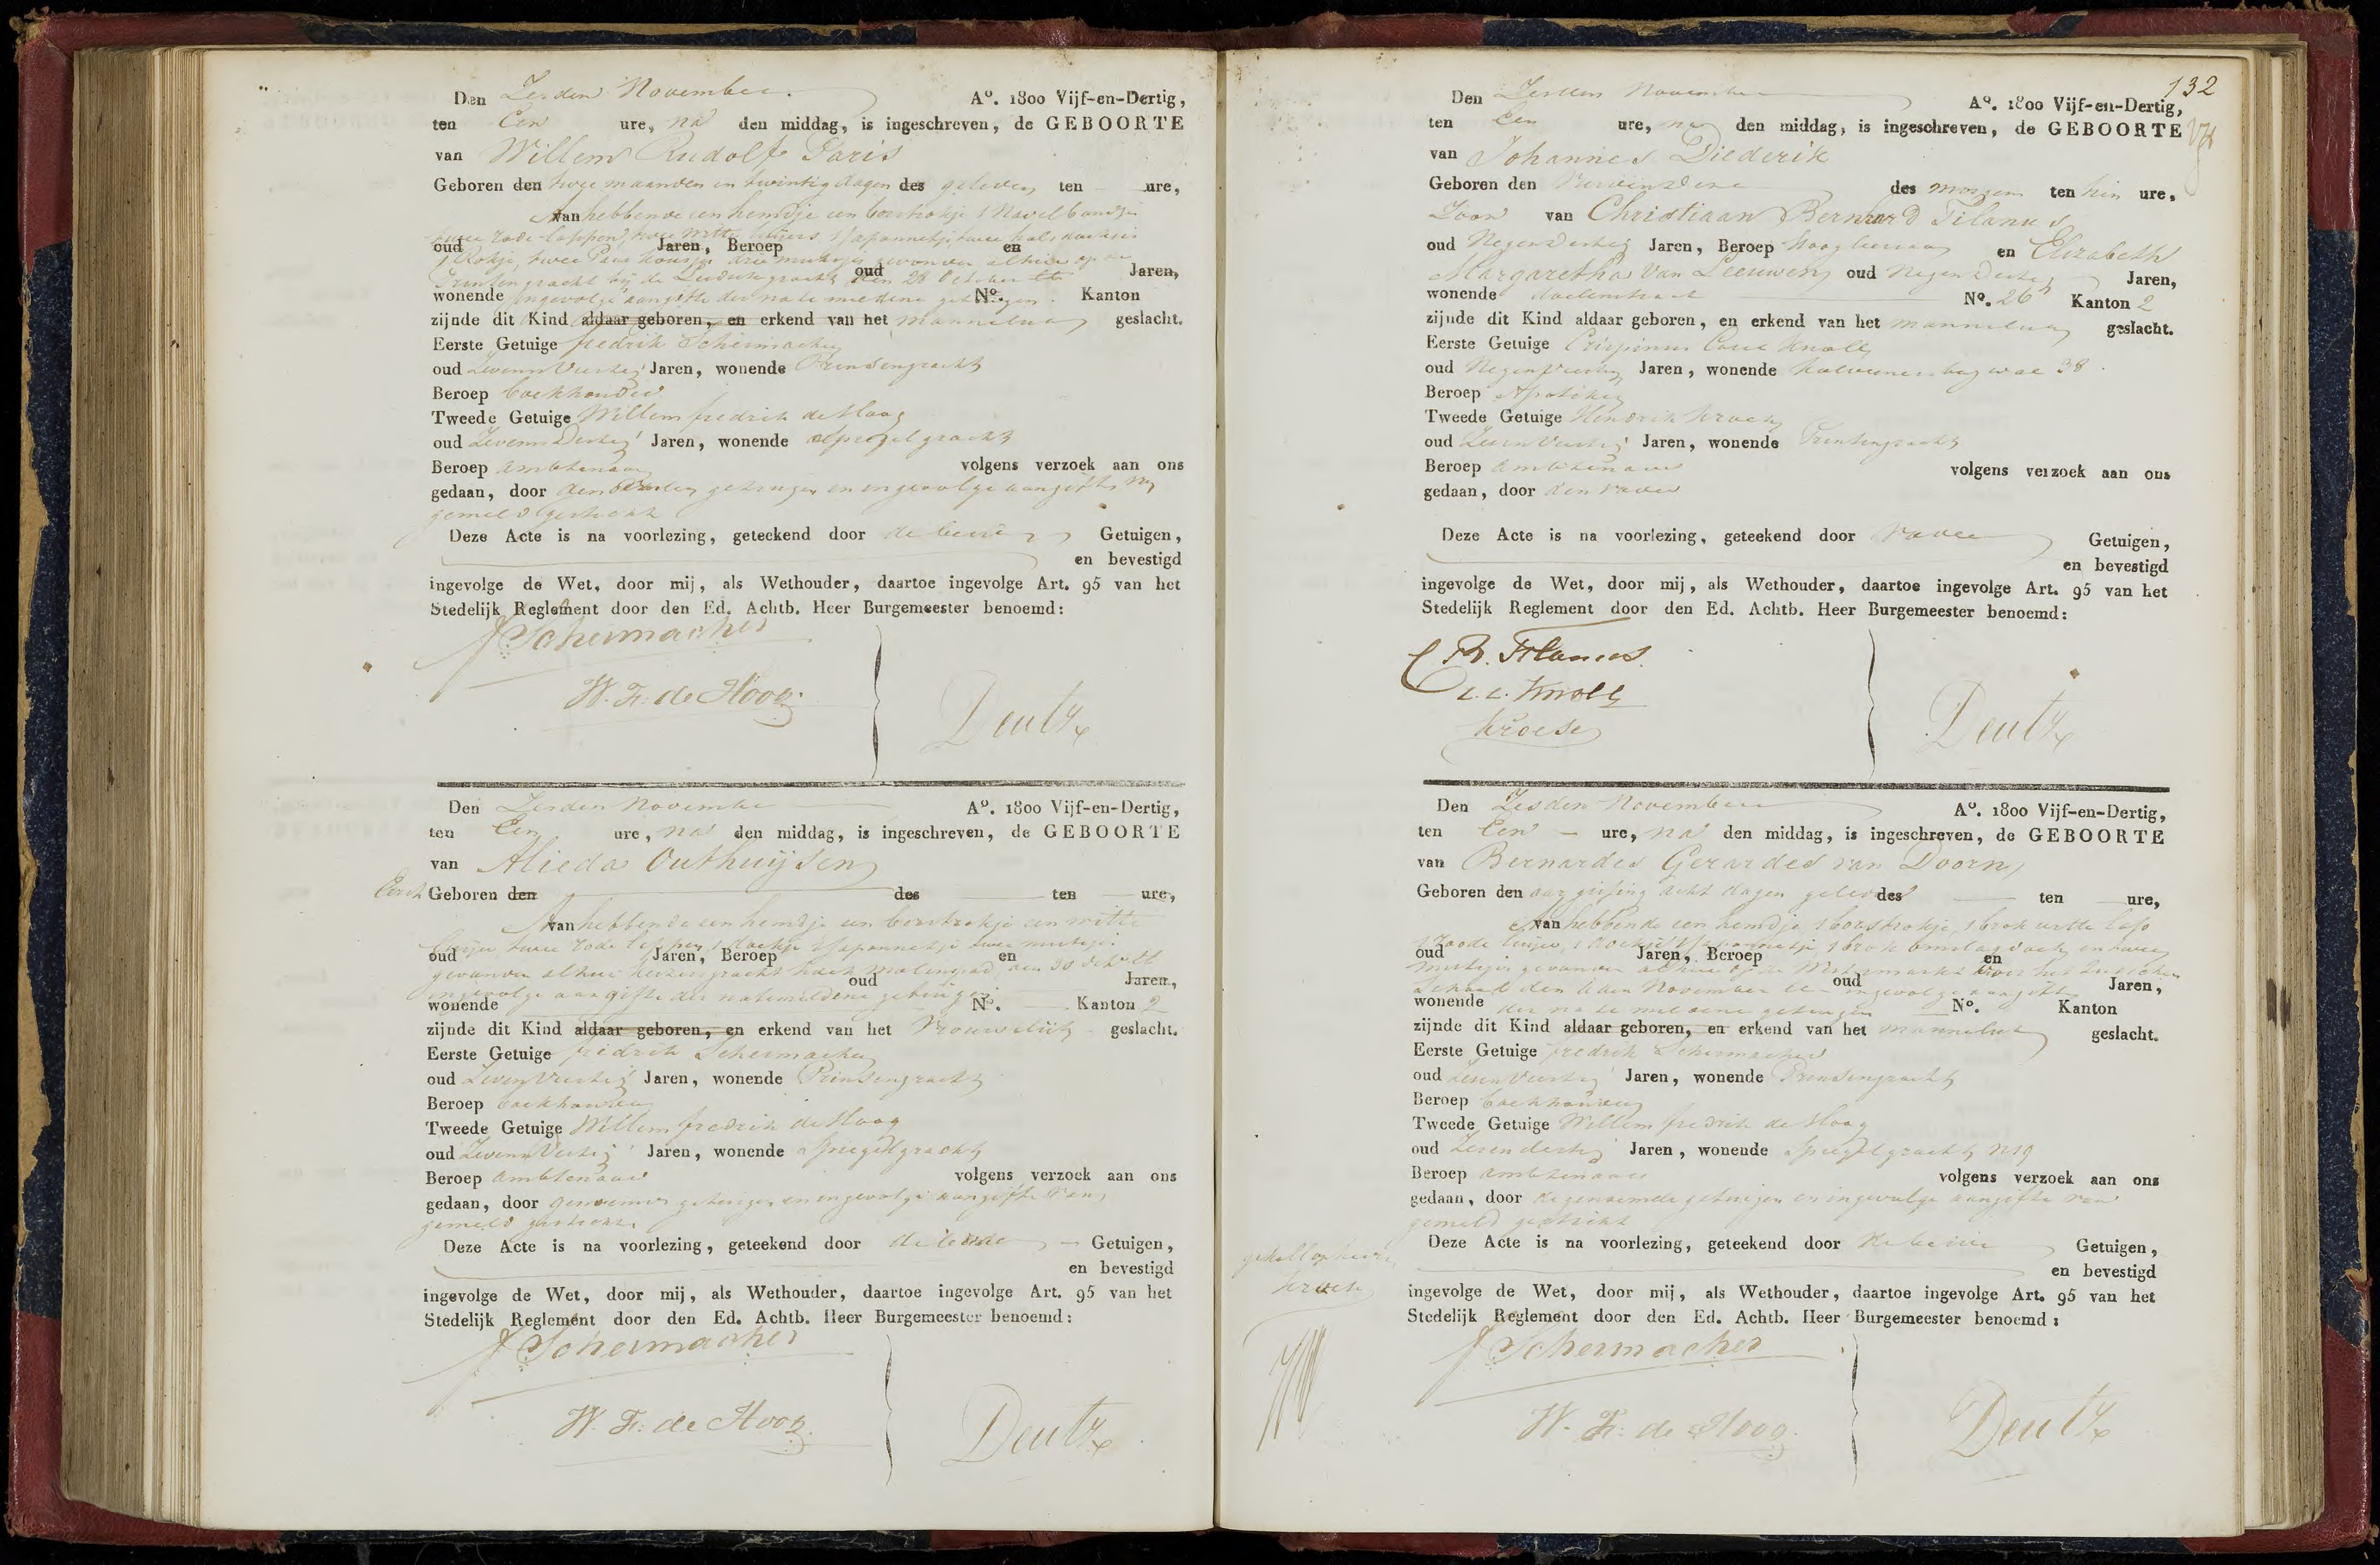 Den Zesden November A⁰. 1800 Vijf-en-Dertig,
ten Een ure, na den middag, is ingeschreven, de GEBOORTE
van Willem Rudolf Paris
Geboren den twee maanden en twintig dagen des geleden ten ure,
Aan hebbende een hemdje een borstrokje 1 Navelbandje
twee rode lappen, twee witte luijers 1 Japonnetje, twee hals
oud Jaren, Beroep en
1 Rokje, twee Paar kousjes drie mutsjes gevonden alhier op de
Prinsengracht bij de Leidschegracht den 28 October
oud Jaren,
wonende ingevolge aangifte der nate meldene getuigen N⁰. Kanton
zijnde dit Kind aldaar geboren, en erkend van het mannelijk geslacht.
Eerste Getuige fredrik Schermacher
oud Zevenenveertig Jaren, wonende Prinsengracht
Beroep boekhouder
Tweede Getuige Willem fredrik de Hoog
oud Zevenendertig Jaren, wonende Spiegelgracht
Beroep ambtenaar volgens verzoek aan ons
gedaan, door getuigen en ingevolge aangifte van
gemeld gesticht
Deze Acte is na voorlezing, geteekend door de beide Getuigen,
en bevestigd
ingevolge de Wet, door mij, als Wethouder, daartoe ingevolge Art. 95 van het
Stedelijk Reglement door den Ed. Achtb. Heer Burgemeester benoemd:
f Schermacher
W. F. de Hoog
Deutz
Den Zesden November A⁰. 1800 Vijf-en-Dertig,
ten Een ure, na den middag, is ingeschreven, de GEBOORTE
van Alieda Outhuijsen
Eerst Geboren den des ten ure,
Aan hebbende een hemdje een borstrokje een witte
luijer twee rode lappen 1 doekje 1 Japonnetje twee mutsjes
oud Jaren, Beroep en
gevonden alhier Keizersgracht hoek Molenpad den 30
oud Jaren,
ingevolge aangifte der natemeldene getuigen
wonende N⁰. Kanton 2
zijnde dit Kind aldaar geboren, en erkend van het Vrouwelijk geslacht.
Eerste Getuige fredrik Schermacher
oud Zevenveertig Jaren, wonende Prinsengracht
Beroep boekhouder
Tweede Getuige Willem fredrik de Hoog
oud Jaren, wonende Spiegelgracht
Beroep ambtenaar volgens verzoek aan ons
gedaan, door genoemde getuigen en ingevolge aangifte van
gemeld gesticht
Deze Acte is na voorlezing, geteekend door de beide Getuigen,
en bevestigd
ingevolge de Wet, door mij, als Wethouder, daartoe ingevolge Art. 95 van het
Stedelijk Reglement door den Ed. Achtb. Heer Burgemeester benoemd:
f Schermacher
W. F. de Hoog
Deutz
132
Den Zesden November A⁰. 1800 Vijf-en-Dertig,
ten Een ure, na den middag, is ingeschreven, de GEBOORTE
van Johannes Diederik
Geboren den Vierden dezer des morgens ten tien ure,
Zoon van Christiaan Bernhard Tilanus
oud Negendertig Jaren, Beroep Hoogleeraar en Elizabeth
Margaretha van Leeuwen oud Negendertig Jaren,
wonende doelenstraat N⁰. 26 Kanton 2
zijnde dit Kind aldaar geboren, en erkend van het mannelijk geslacht.
Eerste Getuige Crispinus Carel Knoll
oud Negenveertig Jaren, wonende kalveniersburgwal 38
Beroep Apotheker
Tweede Getuige Hendrik Kroese
oud Zesenveertig Jaren, wonende Prinsengracht
Beroep ambtenaar volgens verzoek aan ons
gedaan, door den vader
Deze Acte is na voorlezing, geteekend door Vader Getuigen,
en bevestigd
ingevolge de Wet, door mij, als Wethouder, daartoe ingevolge Art. 95 van het
Stedelijk Reglement door den Ed. Achtb. Heer Burgemeester benoemd:
C B. Tilanus.
C. C. Knoll
Kroese
Deutz
Den Zesden November A⁰. 1800 Vijf-en-Dertig,
ten Een ure, na den middag, is ingeschreven, de GEBOORTE
van Bernardes Gerardes van Doorn
Geboren den acht dagen geleden des ten ure,
Aan hebbende een hemdje, 1 borstrokje, 1 witte
1 roode luijer, 1 rokje 1 Japonnetje en twee
oud Jaren, Beroep en
mutsjes gevonden alhier op de Westermarkt over het
den November ingevolge aangifte
oud Jaren,
wonende der na te meldene getuigen N⁰. Kanton
zijnde dit Kind aldaar geboren, en erkend van het mannelijk geslacht.
Eerste Getuige fredrik Schermacher
oud Zevenveertig Jaren, wonende Prinsengracht
Beroep boekhouder
Tweede Getuige Willem fredrik de Hoog
oud Zevendertig Jaren, wonende Spiegelgracht N19
Beroep ambtenaar volgens verzoek aan ons
gedaan, door de genoemde getuigen en ingevolge aangifte van
gemeld gesticht
Deze Acte is na voorlezing, geteekend door de beide Getuigen,
en bevestigd
ingevolge de Wet, door mij, als Wethouder, daartoe ingevolge Art. 95 van het
Stedelijk Reglement door den Ed. Achtb. Heer Burgemeester benoemd:
Kroese
f Schermacher
W. F. de Hoog.
Deutz